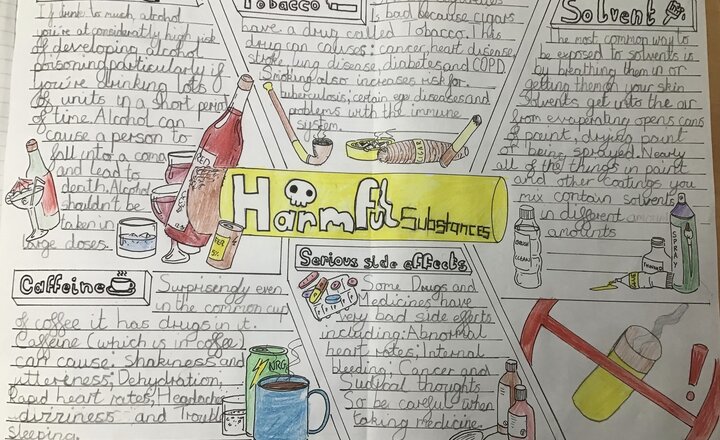 If drink to much alcohol
you're at considerably high risk
of developing alcohol
poisoning particularly if
you're drinking lots
of units in a short period
of time. Alcohol can
cause a person to
fall into a coma
and lead to
death. Alcohol
shouldn't be
taken in
large doses.
Tobacco
Is bad because cigars
have a drug called Tobacco. This
drug can causes: cancer, heart disease,
stroke, lung disease, diabetes and COPD.
Smoking also increases risk for
tuberculosis, certain eye diseases and
problems with the immune
system.
Solvent
The most common way to
be exposed to solvents is
by breathing them in or
getting them on your skin
Solvents get into the air
from evaporating opens cans
of paint, drying paint
or being sprayed. Nearly
all of the things in paint
and other coatings you
mix contain solvents
in different amounts
amounts
Harmful Substances
BEER
5%
SPRAY
Caffeine
Surprisingly even
in the common cup
of coffee it has drugs in it.
Caffeine (which is in coffee)
can cause; Shakiness and
Jitteriness; Dehydration;
Rapid heart rates; Headache
dizziness and Trouble
Sleeping.
NRG
Serious side effects
Some Drugs and
Medicines have
very bad side effects
including: Abnormal
heart rates; Internal
bleeding; Cancer and
Suicidal thoughts
So be careful when
taking medicine.
!